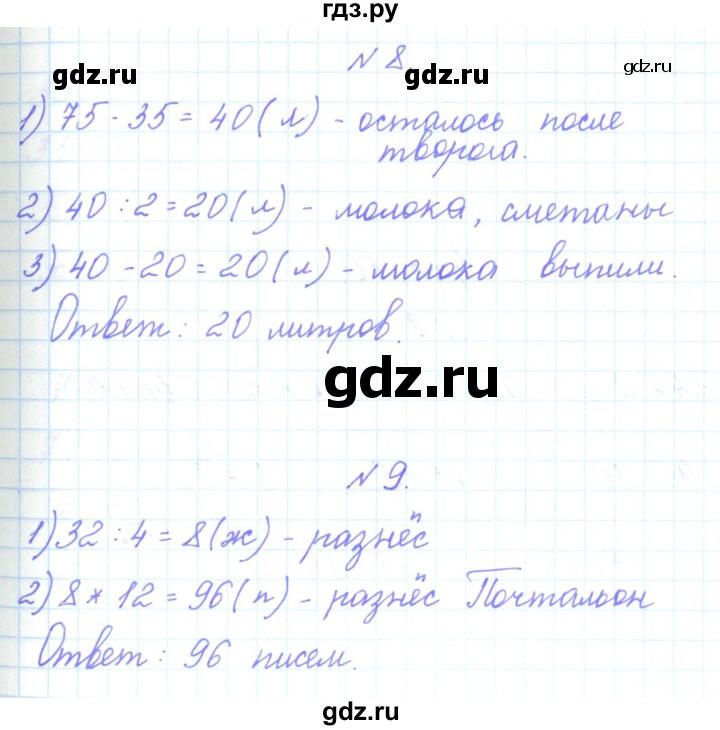 гдз.ру
№ 8.
gdz.ru gdz.ru
1) 75 - 35 = 40 (л) - осталось после
творога.
2) 40 : 2 = 20 (л) - молока, сметаны
3) 40 - 20 = 20 (л) - молока выпили.
Ответ: 20 литров.
gdz.ru
№ 9.
1) 32 : 4 = 8 (ж) - разнёс
п
2) 8 * 12 = 96 (п) - разнёс Почтальон
Ответ: 96 писем.
gdz.ru